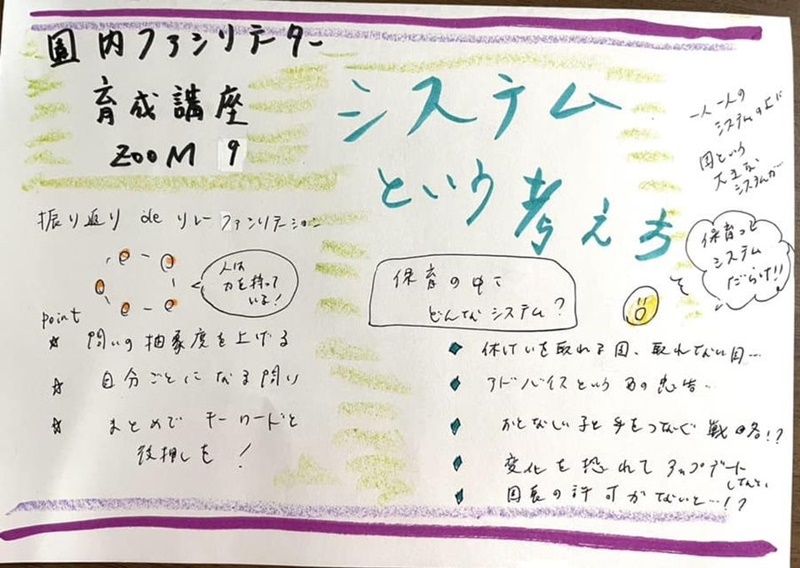 園内ファシリテーター
育成講座
ZOOM 9
システム
という考え方
一人一人の
システムの上に
園という
大きな
システムが
振り返り de リレーファシリテーション
人は
力を持って
いる!
point
☆ 問いの抽象度を上げる
☆ 自分ごとになる問い
☆ まとめでキーワードと
後押しを!
保育の中で
どんなシステム?
保育って
システム
だらけ!!
◆ 休けいを取れる園、取れない園…
◆ アドバイスという名の忠告…
◆ おとなしい子と手をつなぐ戦略!?
◆ 変化を恐れてアップデート
してない
◆ 園長の許可がないと…!?